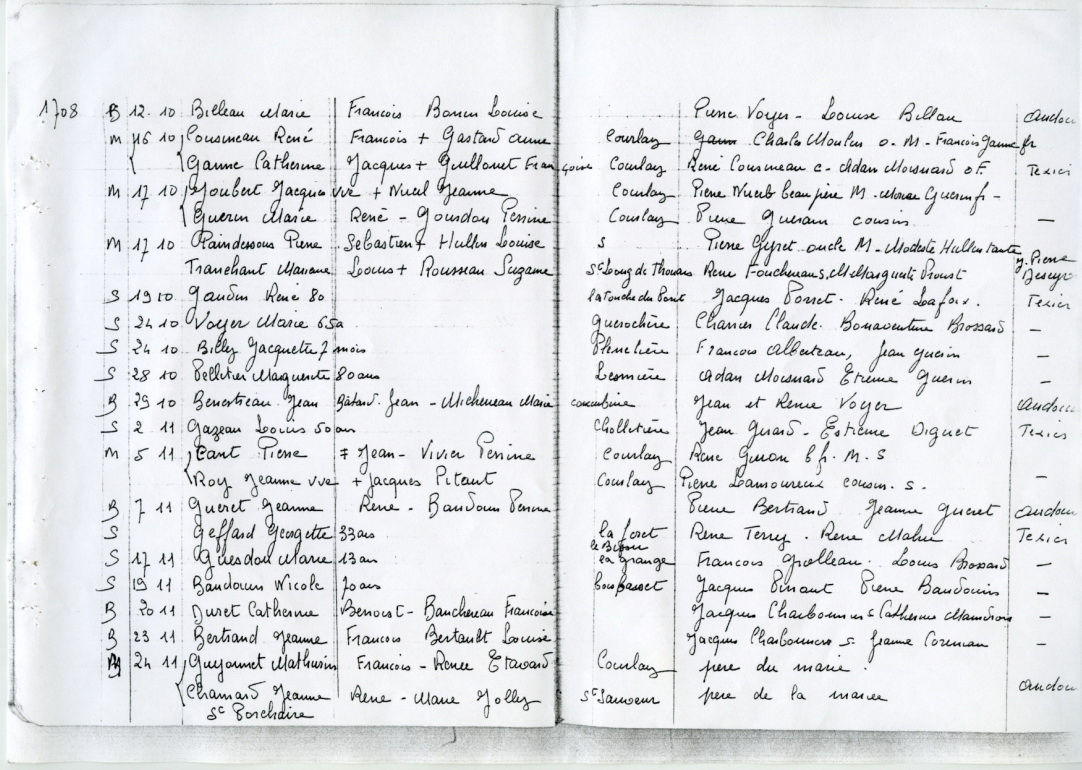 1708 B 12.10 Billeau Marie François Bonin Louise Pierre Voyer - Louise Billau Andou
M 16 10 Cousineau René François + Gastard Anne Courlay Charles Moulin o. M - François Ganne fr
Ganne Catherine Jacques + Guillonet Françoise Courlay René Cousineau c - Adan Moisnard o F. Texier
M 17 10 Joubert Jacques vve + Nueil Jeanne Courlay Pierre Nueil beau père M - Guerin fr -
Guerin Marie René - Gourdon Perrine Courlay Pierre Guerain cousin —
M 17 10 Paindessous Pierre Sebastien + Hullin Louise s Pierre Gyret oncle M - Modeste Hullin tante
Tranchant Mariane Louis + Rousseau Suzanne St Loung de Thouars Rene Marguerite Proust y. Pierre
S 19 10 Gaudin René 80 la touche du Pont Jacques Porret - René Lafoix. Texier
S 24 10 Voyer Marie 65a guerochère Charles Claude. Bonaventure Brossard —
S 24 10 Billy Jacquette 7 mois Plenelière François Alberteau, Jean guerin —
S 28 10 Pelletier Marguerite 80 ans Lesmière Adan Moisnard Etienne Guerin —
B 29 10 Benesteau Jean Batard Jean - Micheneau Marie concubine Jean et Renee Voyer Andou
S 2 11 Gazeau Louis 50 ans Cholletière Jean Girard - Estienne Diguet Texier
M 5 11 Cant Pierre + Jean - Vivier Perrine Courlay Rene Guion b fr. M. S
Roy Jeanne vve + Jacques Pitaut Courlay Pierre Lamoureux cousin. s. —
B 7 11 Gueret Jeanne Rene - Baudouin Perrine Pierre Bertrand Jeanne gueret Andou
S Geffard Georgette 33 ans la foret Rene Terry. Rene Mahu Texier
S 17 11 Guesdon Marie 13 an la grange François Grolleau. Louis Brossard —
S 19 11 Baudouin Nicole 70 ans Jacques Pinant Pierre Baudouin —
B 20 11 Duret Catherine Benoist - Bauchereau Françoise Jacques Charbonnier s Catherine —
B 23 11 Bertrand Jeanne François Bertault Louise Jacques Charbonnier s. Jeanne —
M 24 11 Guyonnet Mathurin François - Renee Etavard Courlay pere du marié.
Chamard Jeanne Rene - Marie Jolly St Sauveur pere de la mariee Andou
St Porchaire